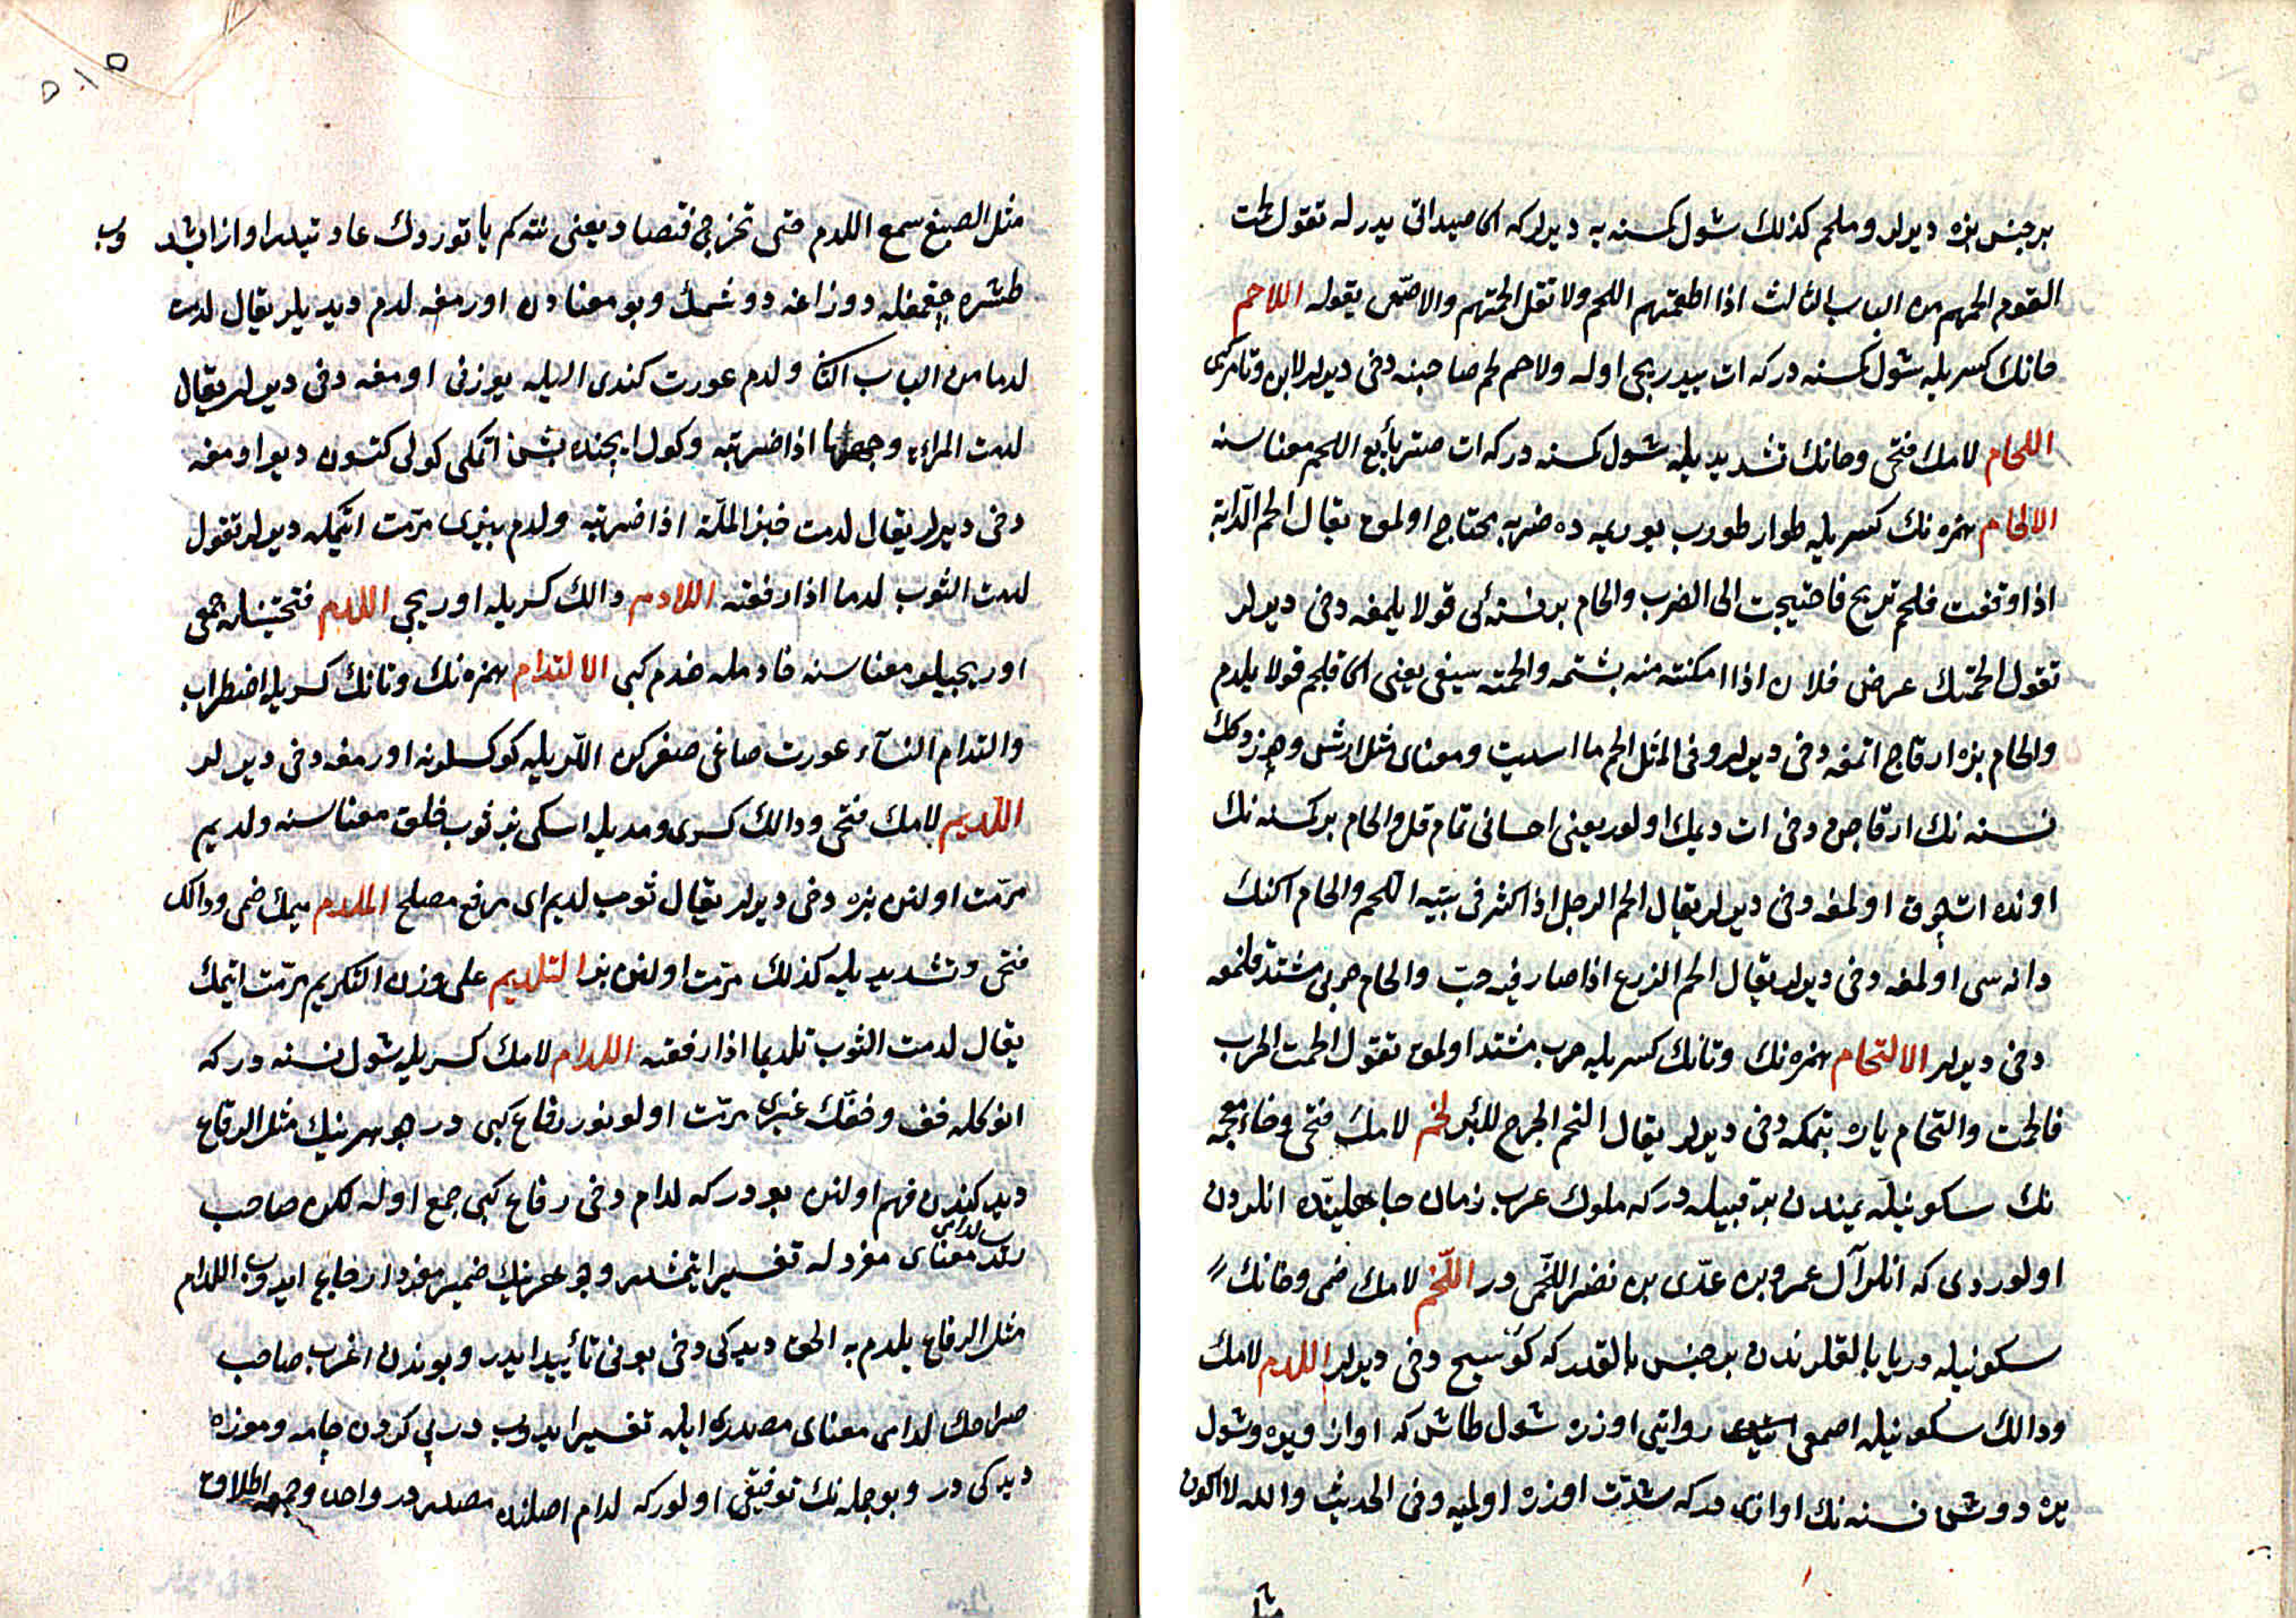 بر جنس بزه ديرلر وملحم كذلك شول كمسنه يه ديرلر كه اكا صيدانى يدرله تقول لحمت
القوم الحمهم من الباب الثالث اذا اطعمتهم اللحم ولا تقل الحمتهم والاصمعى يقوله اللاحم
حانك كسريله شول كمسنه در كه ات ييدريجى اوله ولاحم لحم صاحبنه دخى ديرلر لابن وتامر كبى
اللحام لامك فتحى وحانك تشديديله شول كمسنه در كه ات صتر بايع اللحم معناسنه
الالحام همزه نك كسريله طوار طورب يوريميه ده ضربه محتاج اولمق يقال الحم الدابة
اذا وقفت فلم تبرح فاحتيجت الى الضرب والحام بر نسنه ئى قولايلمغه دخى ديرلر
تقول الحمتك عرض فلان اذا امكنته منه بشتمه والحمته سيفى يعنى اكا قلجم قولايلدم
والحام بزه ارقاج اتمغه دخى ديرلر وفى المثل الحم ما اسديت ومعناى مثل ارش ويردوكك
نسنه نك ارقاجن دخى ات ديمك اولور يعنى احسانى تمام قل والحام بر كمسنه نك
اونده ات چوق اولمغه دخى ديرلر يقال الحم الرجل اذا كثر فى بيته اللحم والحام اكنك
دانه سى اولمغه دخى ديرلر يقال الحم الزرع اذا صار فيه حب والحام حربى مشتد قلمغه
دخى ديرلر الالتحام همزه نك وتانك كسريله حرب مشتد اولمق تقول الحمت الحرب
فالتحمت والتحام ياره بتمكه دخى ديرلر يقال التحم الجرح للبرء لخم لامك فتحى وخاء معجمه
نك سكونيله يمندن بر قبيله در كه ملوك عرب زمان جاهليتده انلردن
اولوردى كه انلر آل عمرو بن عدى بن نضر اللخمى در اللخم لامك ضمى وخانك
سكونيله دريا بالقلرندن بر جنس بالقدر كه كوسج دخى ديرلر اللدم لامك
ودالك سكونيله اصمعى روايتى اوزره شول طاش كه اواز ويره وشول
يره دوشن نسنه نك اوازى در كه شدت اوزره اولميه وفى الحديث والله لا اكون
مثل
٥١٥
مثل الضبع تسمع اللدم حتى تخرج فتصاد يعنى نته كم ياتوردك عادتيدر اواز ايشدوب
طشره چقمغله دوزاغه دوشمك وبو معنادن اورمغه لدم ديديلر يقال لدمت
لدما من الباب الثانى ولدم عورت كندى اليله يوزنى اورمغه دخى ديرلر يقال
لدمت المراءة وجهها اذا ضربته وكول ايچنده بشن اتمكى كولى كتسون ديو اورمغه
دخى ديرلر يقال لدمت خبز الملة اذا ضربته ولدم بزى مرمت اتمكه ديرلر تقول
لدمت الثوب لدما اذا رقعته اللادم دالك كسريله اوريجى اللدم فتحتينله جمعى
اوريجيلر معناسنه خادمله خدم كبى الالتدام همزه نك وتانك كسريله اضطراب
والتدام النساء عورت صاغى صغركن اللريله كوكسلرنه اورمغه دخى ديرلر
اللديم لامك فتحى ودالك كسرى ومديله اسكى بز ثوب خلق معناسنه ولديم
مرمت اولنن بزه دخى ديرلر يقال ثوب لديم اى مرقع مصلح الملدم ميمك ضمى ودالك
فتحى وتشديديله كذلك مرمت اولنن بز التلديم على وزن التكريم مرمت اتمك
يقال لدمت الثوب تلديما اذا رقعته اللدام لامك كسريله شول نسنه در كه
انوكله خف وخفك غيرى مرمت اولونور رقاع كبى در جوهرينك مثل الرقاع
ديديكندن فهم اولنن بودر كه لدام دخى رقاع كبى جمع اوله لكن صاحب
لدامى معناى مفردله تفسير ايتمشدر وجوهرينك ضمير مفرد ارجاع ايدوب اللدام
مثل الرقاع يلدم به الخف ديدكى دخى بونى تأييد ايدر وبوندن اغرب صاحب
صراحك لدامى معناى مصدرى ايله تفسير ايدوب در پى كردن جامه وموزه
ديدكى در وبو جمله نك توفيقى اولور كه لدام اصلنده مصدر در واحد وجمعه اطلاق